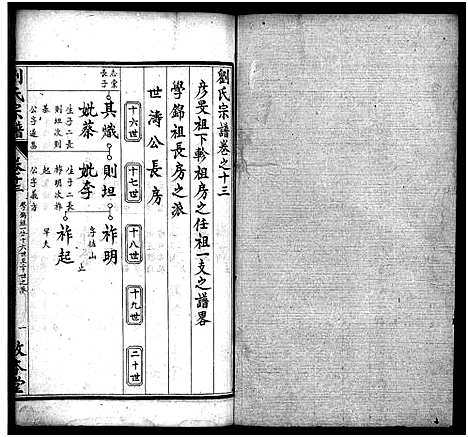 劉氏宗譜卷之十三
彥旻祖下軫祖房之任祖一支之譜畧
學錦祖長房之派
世濤公長房
十六世
十七世
十八世
十九世
二十世
志棠
長子
其熾
則坦
祚明
字植山
妣蔡
妣李
止
生子二長
則坦次則
基
生子二長
祚明次祚
起
祚起
早夭
公字遜昌
公字義方
劉氏宗譜
卷十三
一